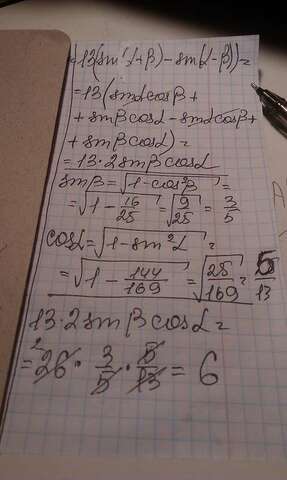 =13(sin(α+β)-sin(α-β))=
=13(sinα cosβ+
+sinβ cosα-sinα cosβ+
+sinβ cosα)=
=13·2sinβ cosα
sinβ=√(1-cos²β)=
=√(1-16/25)=√(9/25)=3/5
cosα=√(1-sin²α)=
=√(1-144/169)=√(25/169)=5/13
13·2sinβ cosα=
=26·3/5·5/13=6